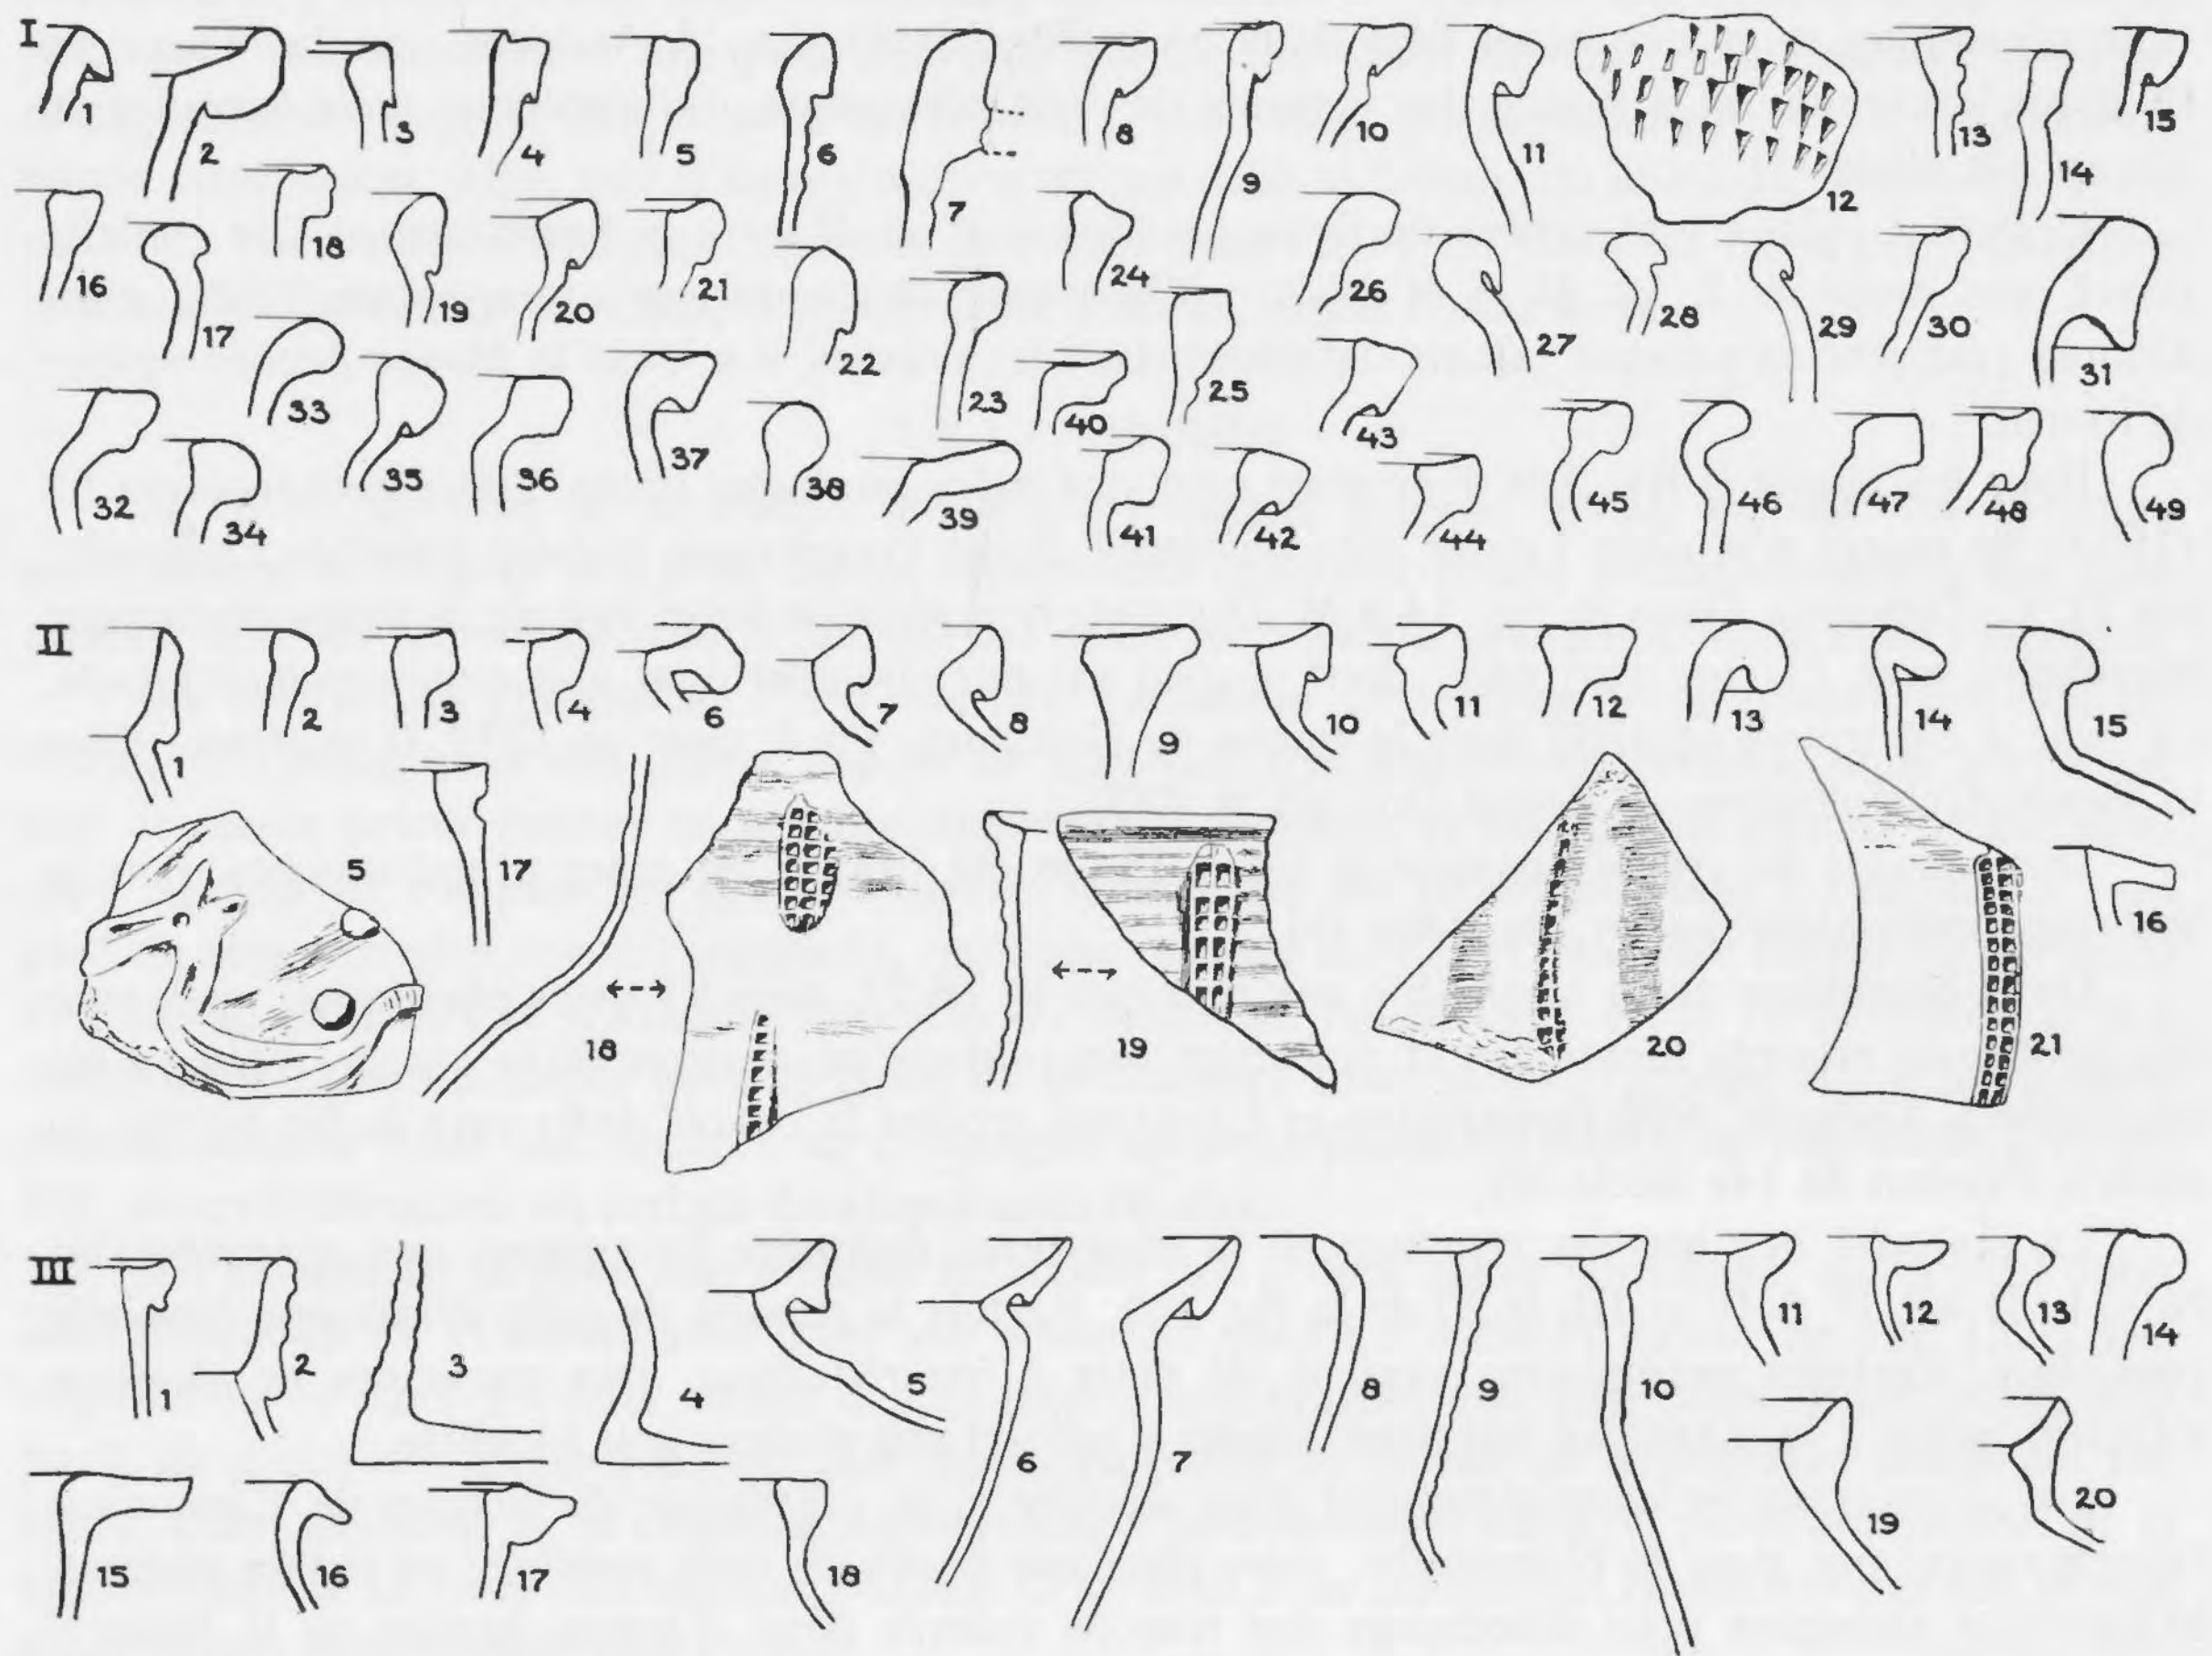 I
1 2 3 4 5 6 7 8 9 10 11 12 13 14 15
16 17 18 19 20 21 22 23 24 25 26 27 28 29 30 31
32 33 34 35 36 37 38 39 40 41 42 43 44 45 46 47 48 49
II
1 2 3 4 6 7 8 9 10 11 12 13 14 15
5 17 18 19 20 21 16
III
1 2 3 4 5 6 7 8 9 10 11 12 13 14
15 16 17 18 19 20